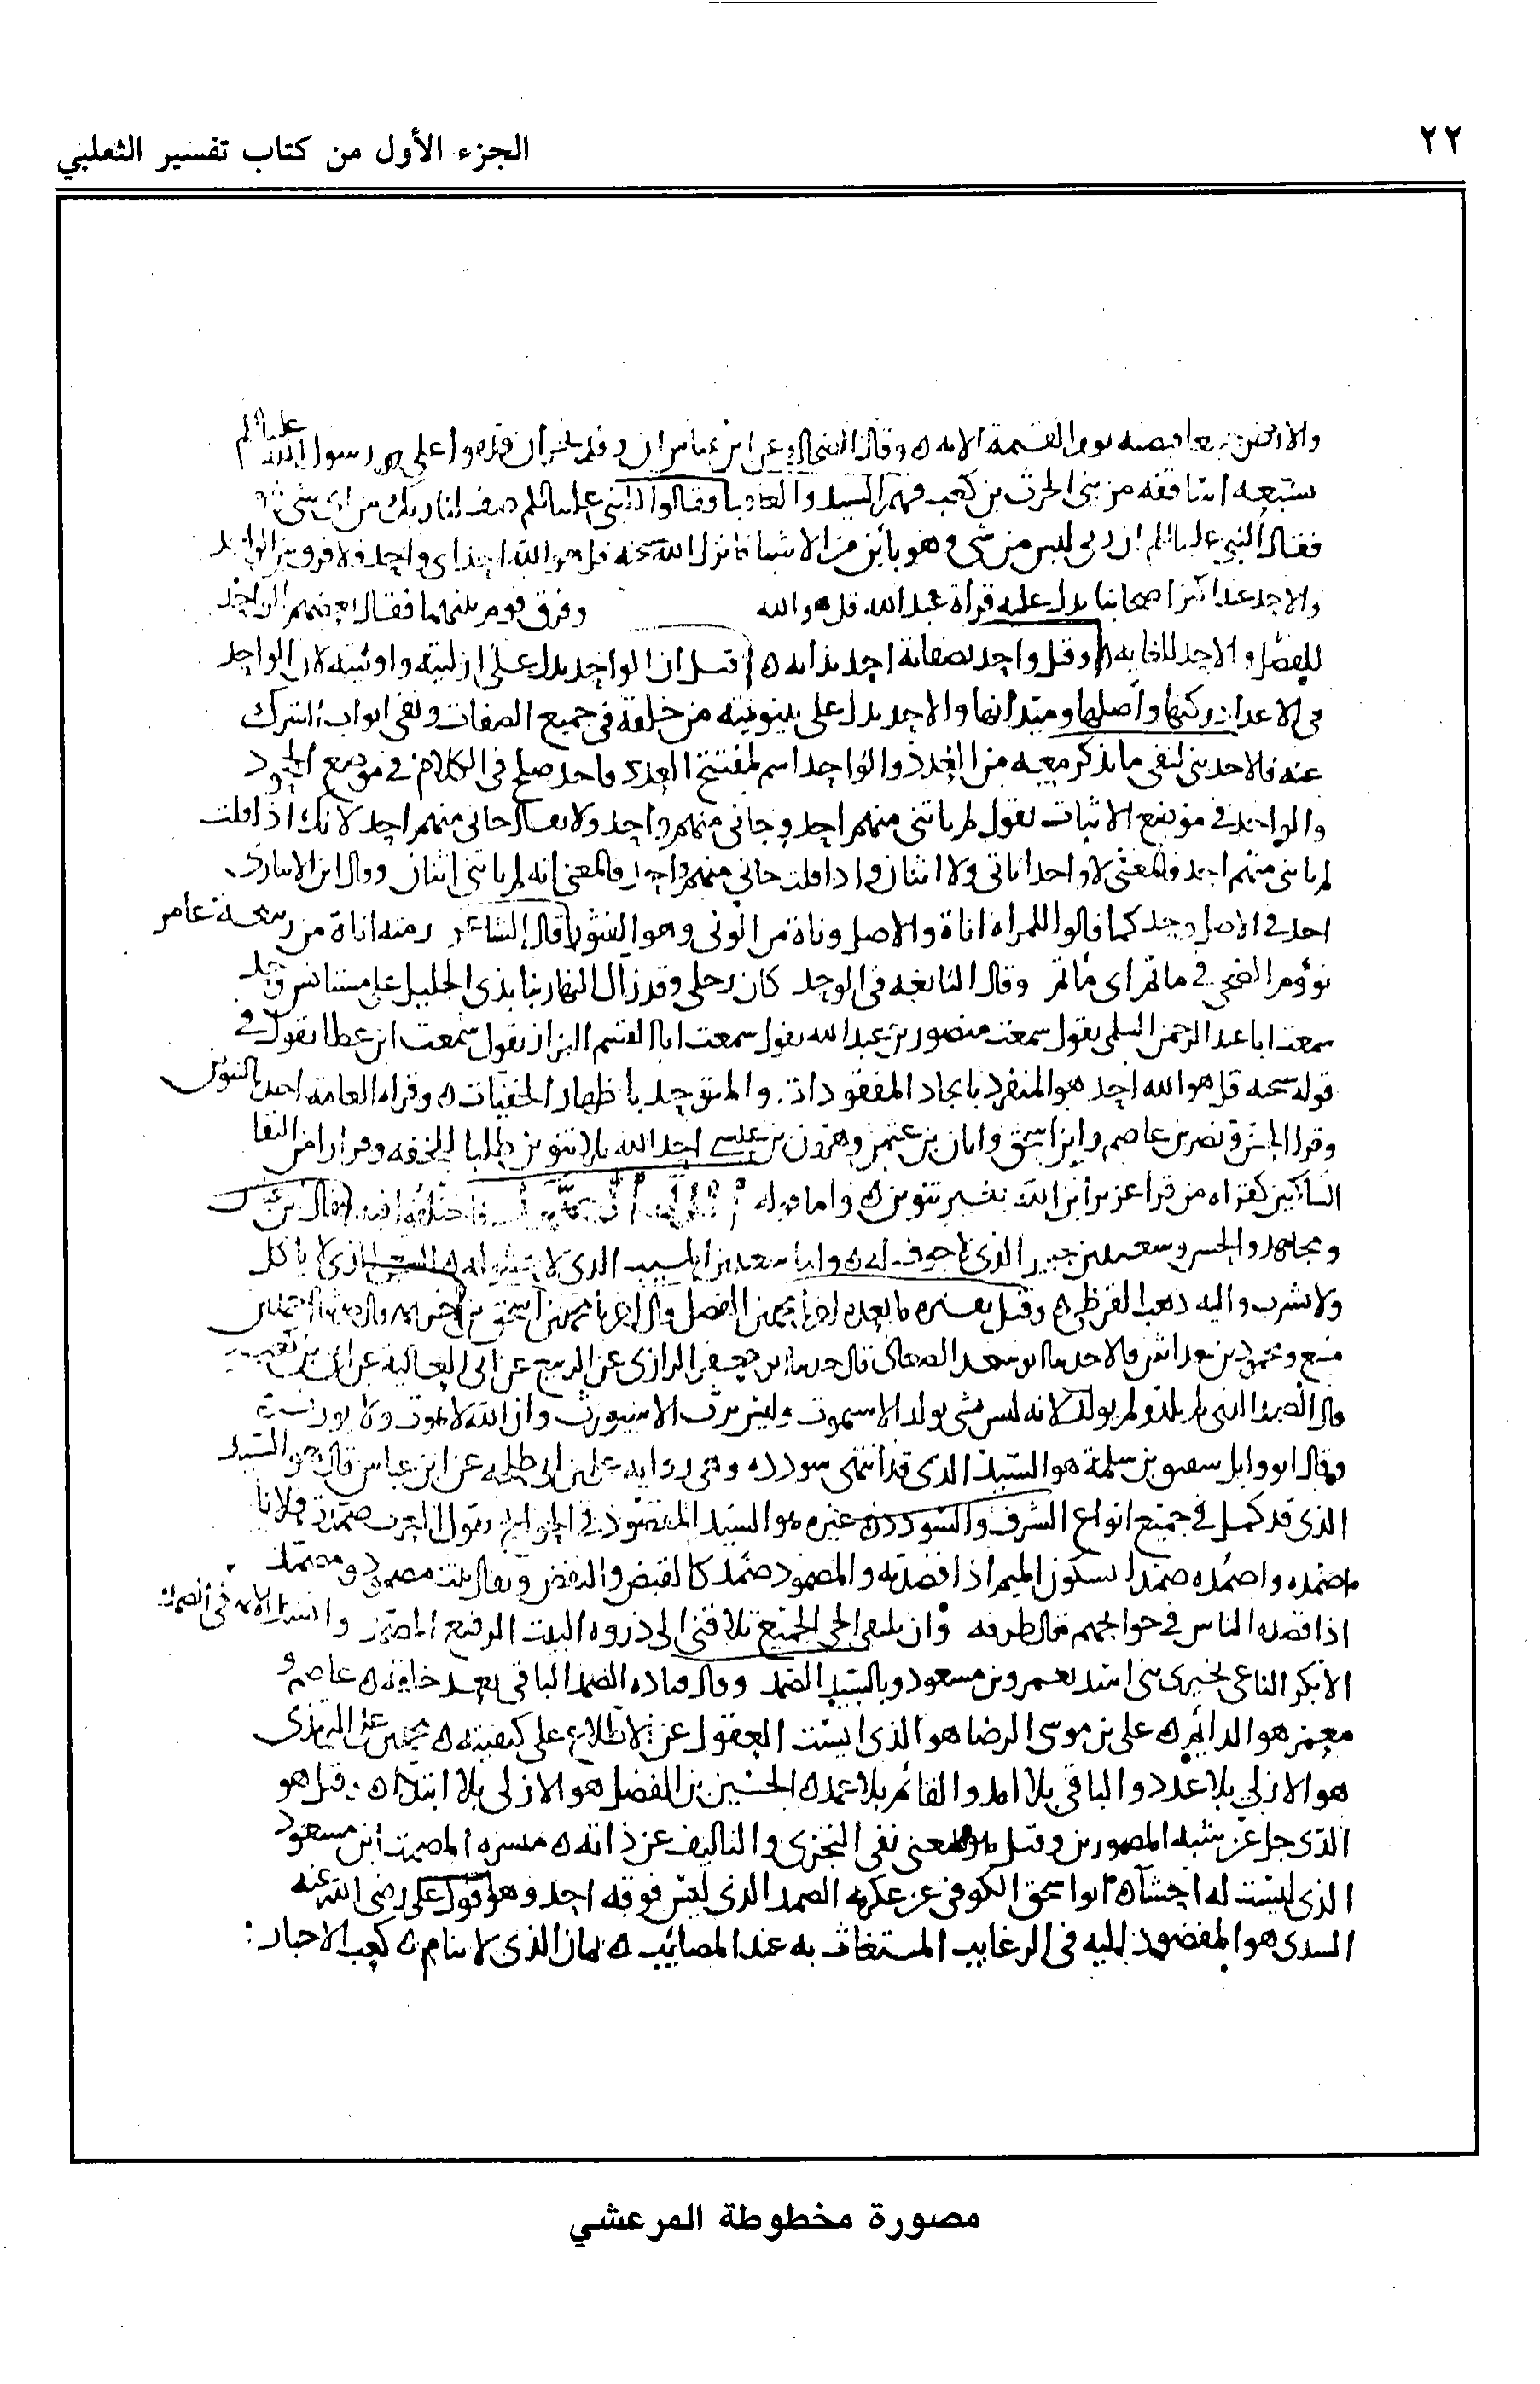 ٢٢
الجزء الأول من كتاب تفسير الثعلبي
والارض جميعا قبضته يوم القيمة الايه وقال الضحاك عن ابن عباس ان وفد نجران قدموا على رسول الله عليه السلم
بسبعة اساقفه من بني الحرث بن كعب فيهم السيد والعاقب فقالوا للنبي عليه السلم صف لنا ربك من اي شي
فقال النبي عليه السلم ان ربي ليس من شي وهو بائن من الاشيا فانزل الله سبحنه قل هو الله احد اي واحد فلا فرق بين الواحد
والاحد عند اكثر اصحابنا يدل عليه قراة عبد الله قل هو الله وفرق قوم بينهما فقال بعضهم الواحد
للفصل والاحد للغايه وقيل واحد بصفاته احد بذاته وقيل ان الواحد يدل على ازليته واوليته لان الواحد
في الاعداد ركنها واصلها ومبتدانها والاحد يدل على بينونيته من خلقه في جميع الصفات ونفي ابواب الشرك
عنه فالاحد بني لنفي ما يذكر معه من العدد والواحد اسم لمفتتح العدد فاحد صلح في الكلام في موضع الجحود
والواحد في موضع الاثبات تقول لم ياتني منهم احد وجاني منهم واحد ولا يقال جاني منهم احد لانك اذا قلت
لم ياتني منهم احد فالمعنى لا واحد اتاني ولا اثنان واذا قلت جاني منهم واحد فالمعنى انه لم ياتني اثنان وقال ابن الانباري
احد في الاصل وحد كما قالوا للمراة اناة والاصل وناة من الونى وهو الفتور قال الشاعر رمته اناة من ربيعة عامر
نووم الضحى في ماتم اي ماتم وقال النابغه في الوحد كان رحلي وقد زال النهار بنا بذي الجليل على مستانس وحد
سمعت ابا عبد الرحمن السلمي يقول سمعت منصور بن عبد الله يقول سمعت ابا القسم البزاز يقول سمعت ابن عطا يقول في
قوله سبحنه قل هو الله احد هو المنفرد بايجاد المفقودات والمتوحد باظهار الخفيات وقراه العامة احد بالتنوين
وقرا الحسن ونصر بن عاصم وابن اسحق وابان بن عثمن وهرون بن عيسى احد الله بلا تنوين طلبا للخفه وفرارا من التقا
الساكنين كقراه من قرا عزير ابن الله بغير تنوين واما قوله الله الصمد فاختلفوا فيه فقال ابن عباس
ومجاهد والحسن وسعيد بن جبير الذي لا جوف له واما سعيد بن المسيب الذي لا حشو له الشعبي الذي لا ياكل
ولا يشرب واليه ذهب القرظي وقيل يفسره ما بعده
قال الصمد الذي لم يلد ولم يولد لانه ليس شي يولد الا سيموت وليس يرث الا سيورث وان الله لا يموت ولا يورث
وقال ابو وايل شقيق بن سلمة هو السيد الذي قد انتهى سودده وهي روايه علي بن ابي طلحه عن ابن عباس قال هو السيد
الذي قد كمل في جميع انواع الشرف والسودد غيره هو السيد المقصود في الحوايج يقول العرب صمدت فلانا
اصمده واصمده صمدا بسكون الميم اذا قصدته والمصمود صمد كالقبض والنفض ويقال بيت مصمود ومصمد
اذا قصده الناس في حوايجهم قال طرفه وان يلتقي الحي الجميع تلاقني الى ذروه البيت الرفيع المصمد وانشد الايه في الصمد
الا بكر الناعي بخيري بني اسد بعمرو بن مسعود وبالسيد الصمد وقال قتاده الصمد الباقي بعد خلقه عاصم و
معمر هو الدائم علي بن موسى الرضا هو الذي ايست العقول عن الاطلاع على كيفيته محمد بن علي الترمذي
هو الازلي بلا عدد والباقي بلا امد والقائم بلا عمد الحسين بن الفضل هو الازلي بلا ابتدا وقيل هو
الذي جل عن شبه المصورين وقيل هو بمعنى نفي التجزي والتاليف عن ذاته ميسره المصمت ابن مسعود
الذي ليست له احشا ابو اسحق الكوفي عن عكرمه الصمد الذي ليس فوقه احد وهو قول علي رضي الله عنه
السدي هو المقصود اليه في الرغايب المستغاث به عند المصائب يمان الذي لا ينام كعب الاحبار :
مصورة مخطوطة المرعشي